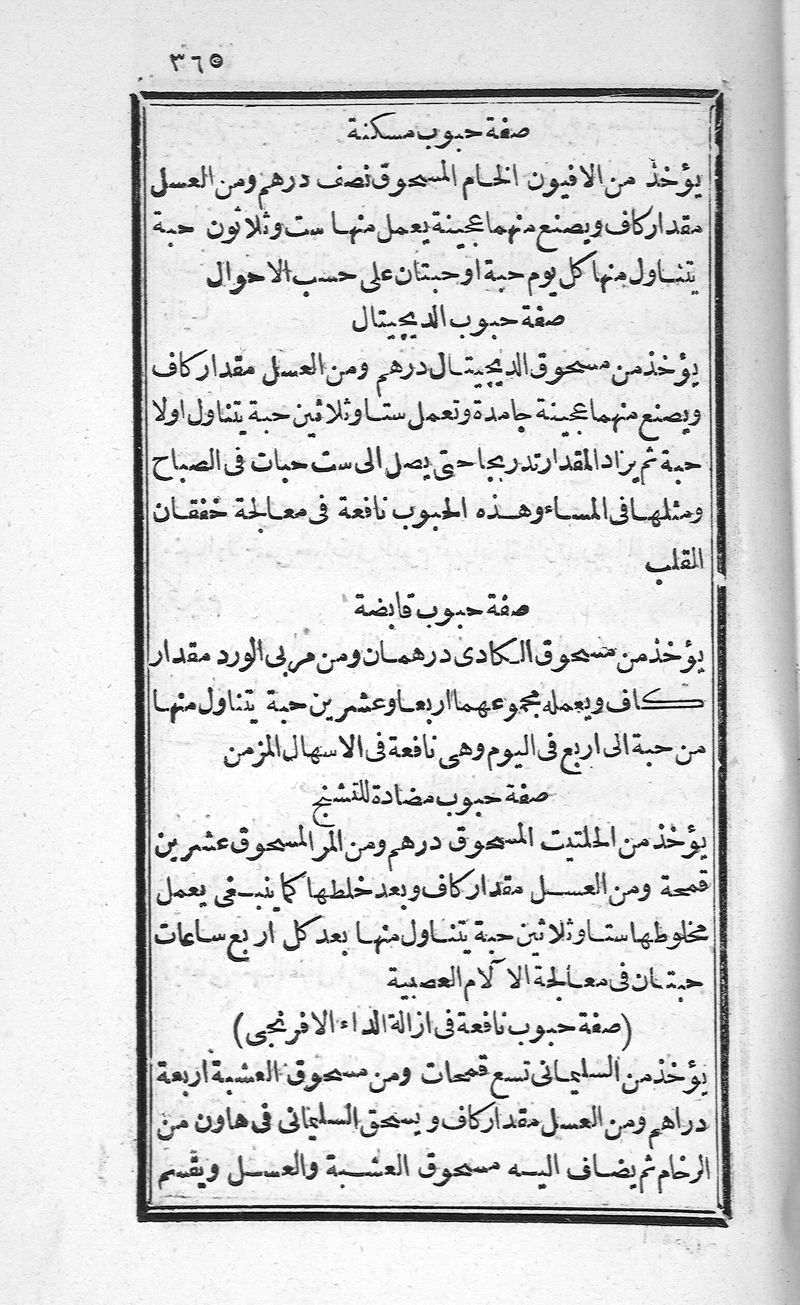 ٣٦٥
صفة حبوب مسكنة
يؤخذ من الافيون الخام المسحوق نصف درهم ومن العسل
مقدار كاف ويصنع منهما عجينة يعمل منها ست وثلاثون حبة
يتناول منها كل يوم حبة او حبتان على حسب الاحوال
صفة حبوب الديچيتال
يؤخذ من مسحوق الديچيتال درهم ومن العسل مقدار كاف
ويصنع منهما عجينة جامدة وتعمل ستا وثلاثين حبة يتناول اولا
حبة ثم يزاد المقدار تدريجا حتى يصل الى ست حبات فى الصباح
ومثلها فى المساء وهذه الحبوب نافعة فى معالجة خفقان
القلب
صفة حبوب قابضة
يؤخذ من مسحوق الكادى درهمان ومن مربى الورد مقدار
كاف ويعمله مجموعهما اربعا وعشرين حبة يتناول منها
من حبة الى اربع فى اليوم وهى نافعة فى الاسهال المزمن
صفة حبوب مضادة للتشنج
يؤخذ من الحلتيت المسحوق درهم ومن المر المسحوق عشرين
قمحة ومن العسل مقدار كاف وبعد خلطها كما ينبغى يعمل
مخلوطها ستا وثلاثين حبة يتناول منها بعد كل اربع ساعات
حبتان فى معالجة الآلام العصبية
(صفة حبوب نافعة فى ازالة الداء الافرنجى)
يؤخذ من السليمانى تسع قمحات ومن مسحوق العشبة اربعة
دراهم ومن العسل مقدار كاف ويسحق السليمانى فى هاون من
الرخام ثم يضاف اليه مسحوق العشبة والعسل ويقسم